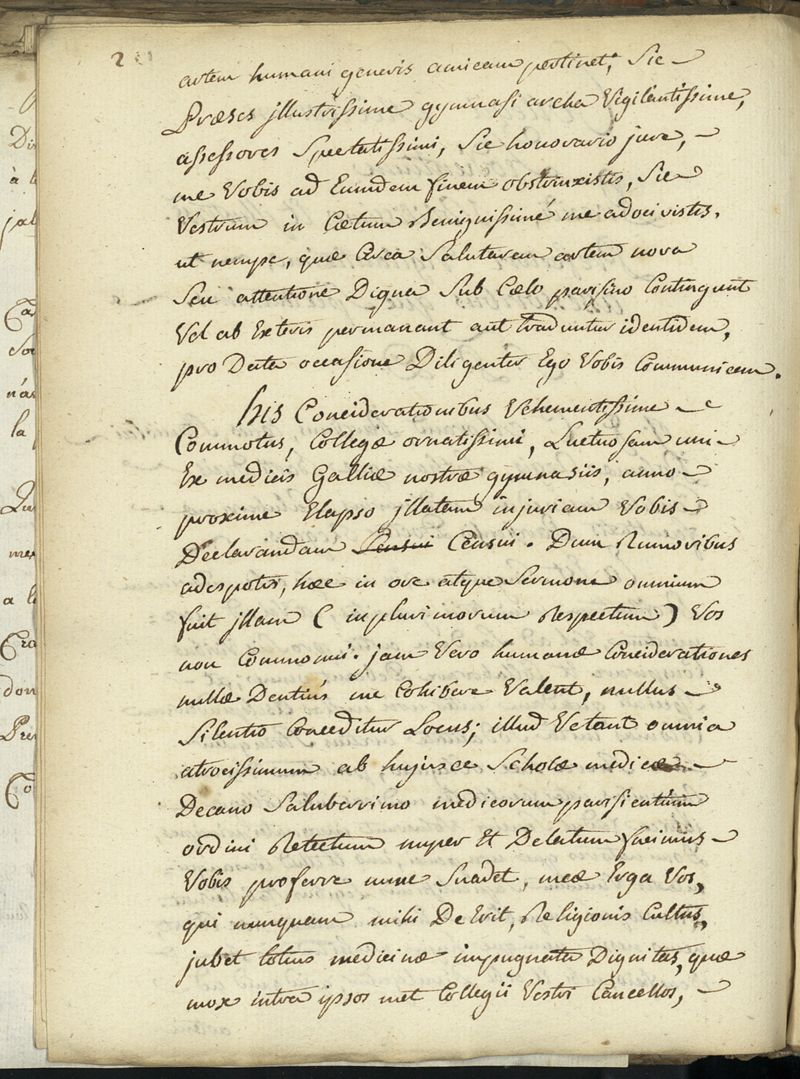 2
artem humani generis amicam pertinet; Sic
Præses jllustrissime gymnasi archa Vigilantissime,
assessores Spectatissimi, Sic honorario jure,
me Vobis ad Eumdem finem obstrinxistis, Sic
Vestrum in Cœtum Benignissimé me adscivistis.
ut nempe, quæ Circa Salutarem artem nova
Seu attentione Digna Sub Cælo parisino Contingunt
Vel ab Exteris permanant aut traduntur identidem,
pro Data occasione Diligenter Ego Vobis Communicem.
his Considerationibus Vehementissime
Commotus, Collegæ ornatissimi, Luctuosam uni
Ex medicis Galliæ nostræ gymnasiis, anno
proxime Elapso jllatam injuriam Vobis
Declarandam Censui Censui. Dum Rumoribus
adespotis, hæc in ore atque Sermone omnium
fuit jllam (in plurimorum Respectum) Vos
non Commonui. jam Vero humanæ Considerationes
nullæ Dentius me Cohibere Valent, nullus
Silentio Conceditur Locus; illud Vetant omnia
atrocissimum ab hujusce Scholæ medicæ
Decano Saluberrimo medicorum parisientium
ordini Retectum nuper Et Delatum facinus
Vobis proferre nunc Suadet, meæ Erga Vos,
qui nunquam mihi DeErit, Religionis Cultus,
jubet totius medicinæ impugnata Dignitas, quæ
mox intra ipsos met Collegii Vestri Cancellos,